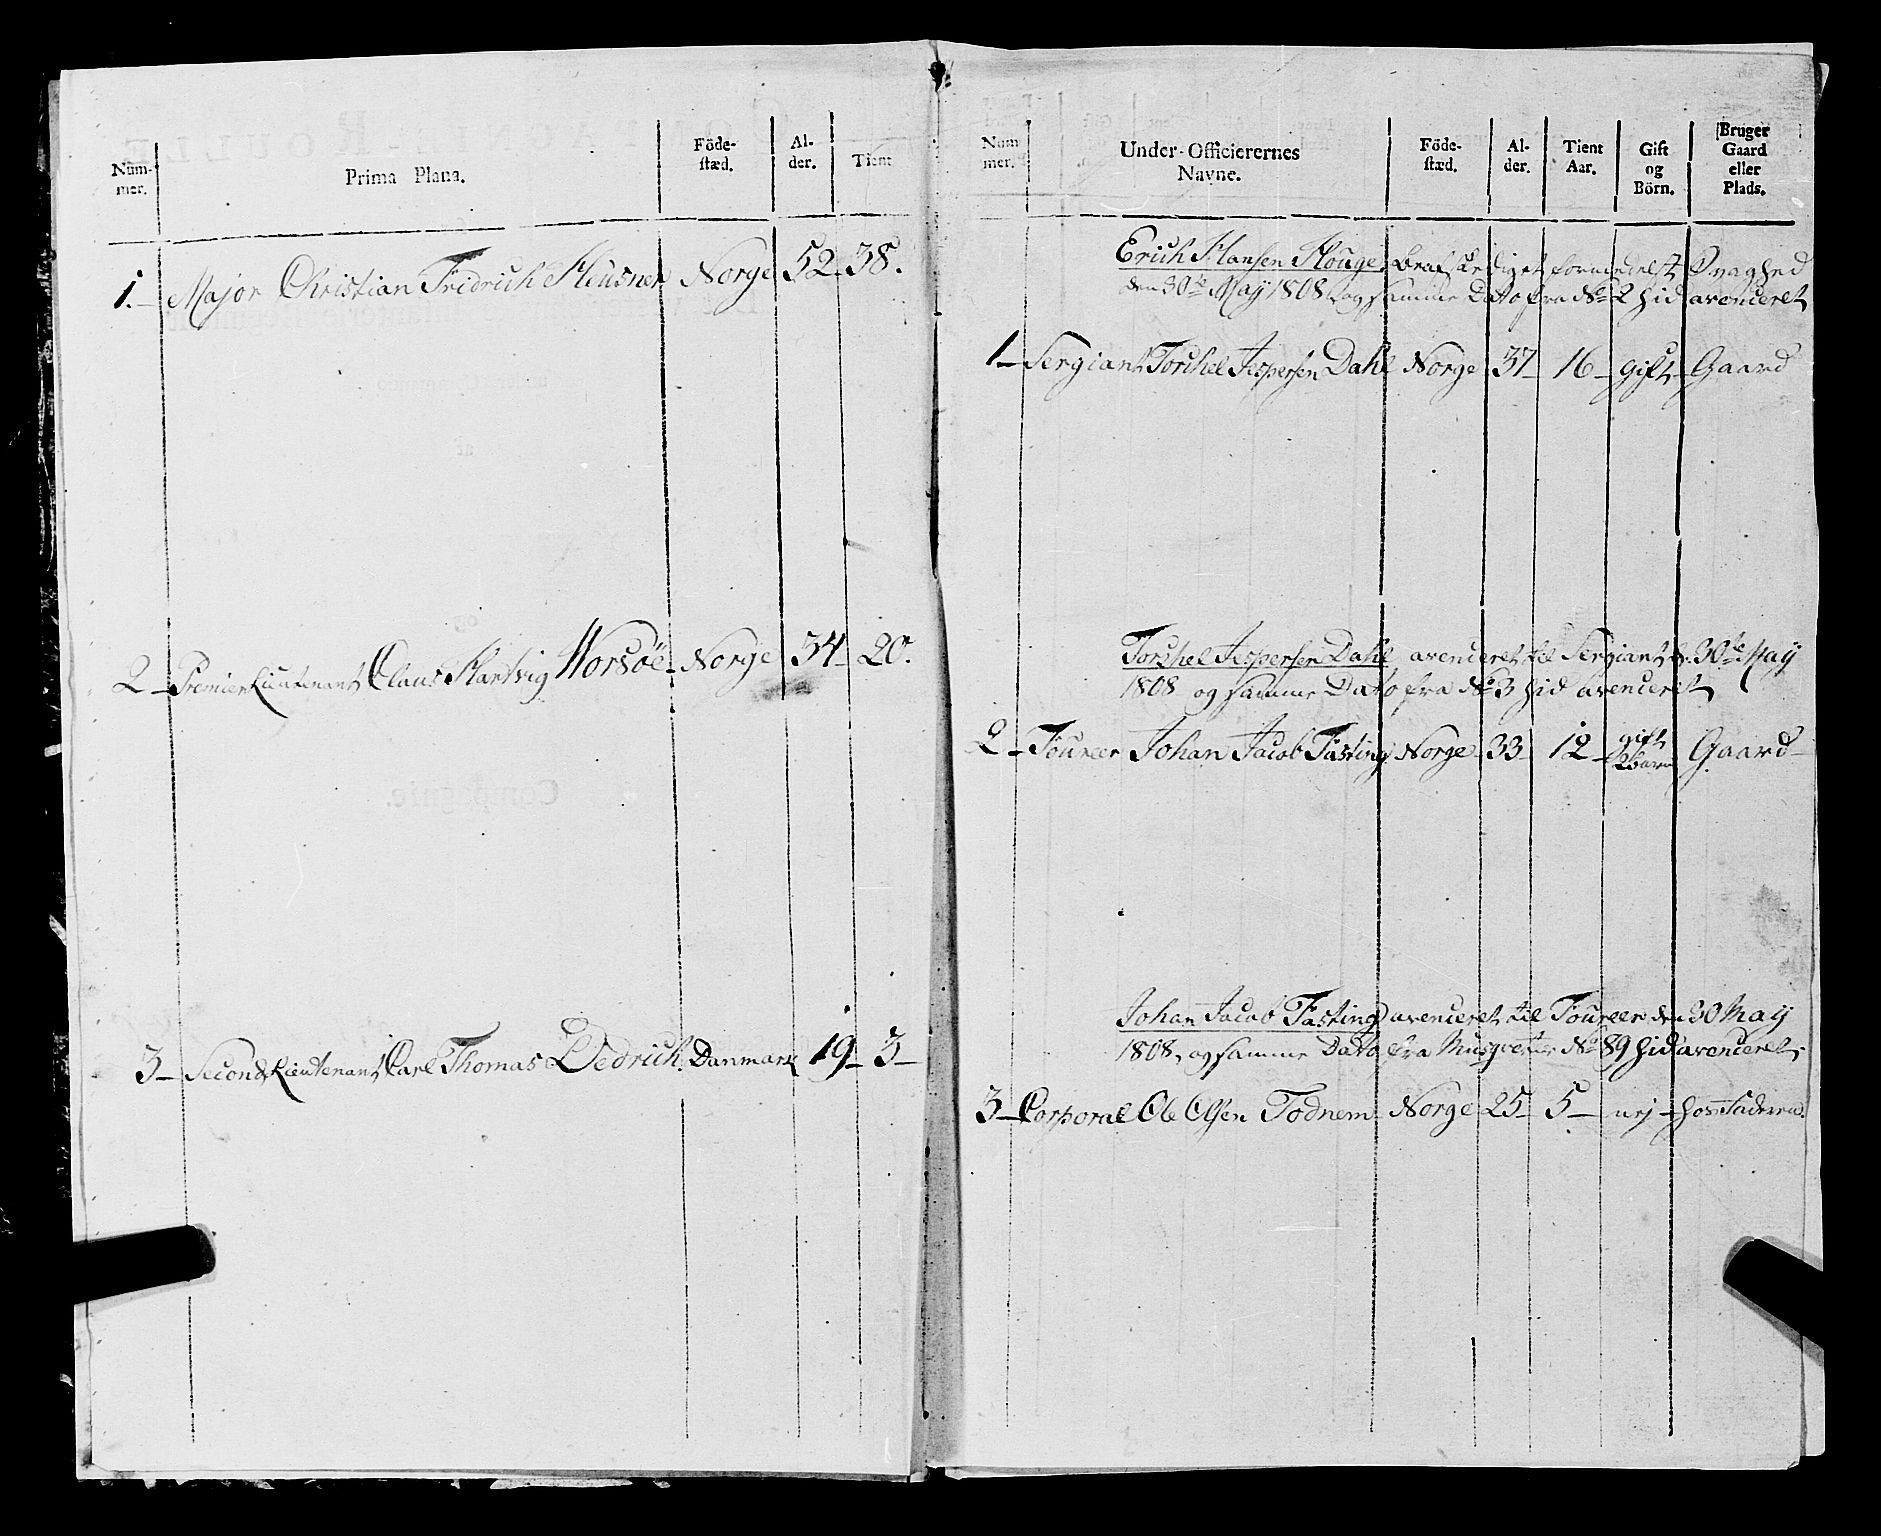 Num-
mer.
Prima Plana.
Föde-
stæd.
Al-
der.
Tient
1. Major Christian Fridrich Heusner Norge 52 38.
2 Premier Lieutenant Claus Hartvig Worsöe Norge 34 20.
3 Second Lieutenant Carl Thomas Dedrich Danmark 19 3
Num
mer.
Under-Officierernes
Navne.
Föde-
stæd.
Al-
der.
Tient
Aar.
Gift
og
Börn.
Bruger
Gaard
eller
Plads.
Erich Hansen Houge, beafskediget formedelst Svaghed
den 30te May 1808 og samme Dato fra No 2 hid avenceret
1 Sergiant Torchel Jespersen Dahl Norge 37 16 gift Gaard
Torchel Jespersen Dahl avenceret til Sergiant d. 30te May
1808 og samme Dato fra No 3 hid avenceret
2 Foureer Johan Jacob Fasting Norge 33 12 gift 2 barn Gaard
Johan Jacob Fasting avenceret til Foureer den 30 May
1808, og samme Dato fra Musqveteer No 89 hid avenceret
3 Corporal Ole Olsen Todnem Norge 25 5 nej hos Faderen.